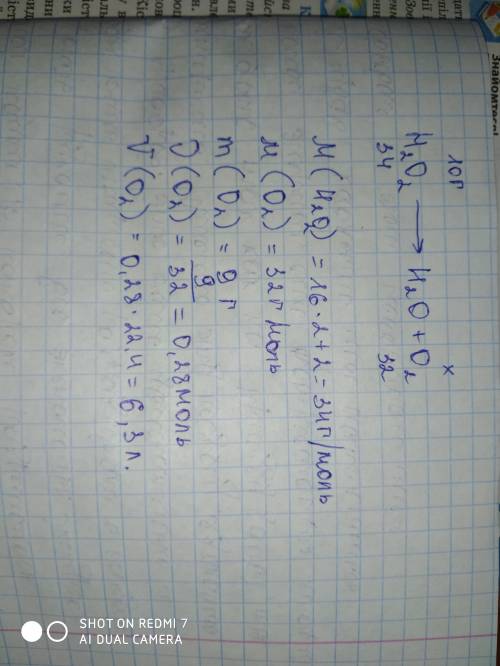 10г x
H₂O₂ ⟶ H₂O + O₂
34 32
M(H₂O₂) = 16·2+2=34г/моль
M(O₂) = 32г/моль
m(O₂) = 9г
ν(O₂) = 9/32 = 0,28моль
V(O₂) = 0,28·22.4 = 6,3л.
SHOT ON REDMI 7
AI DUAL CAMERA